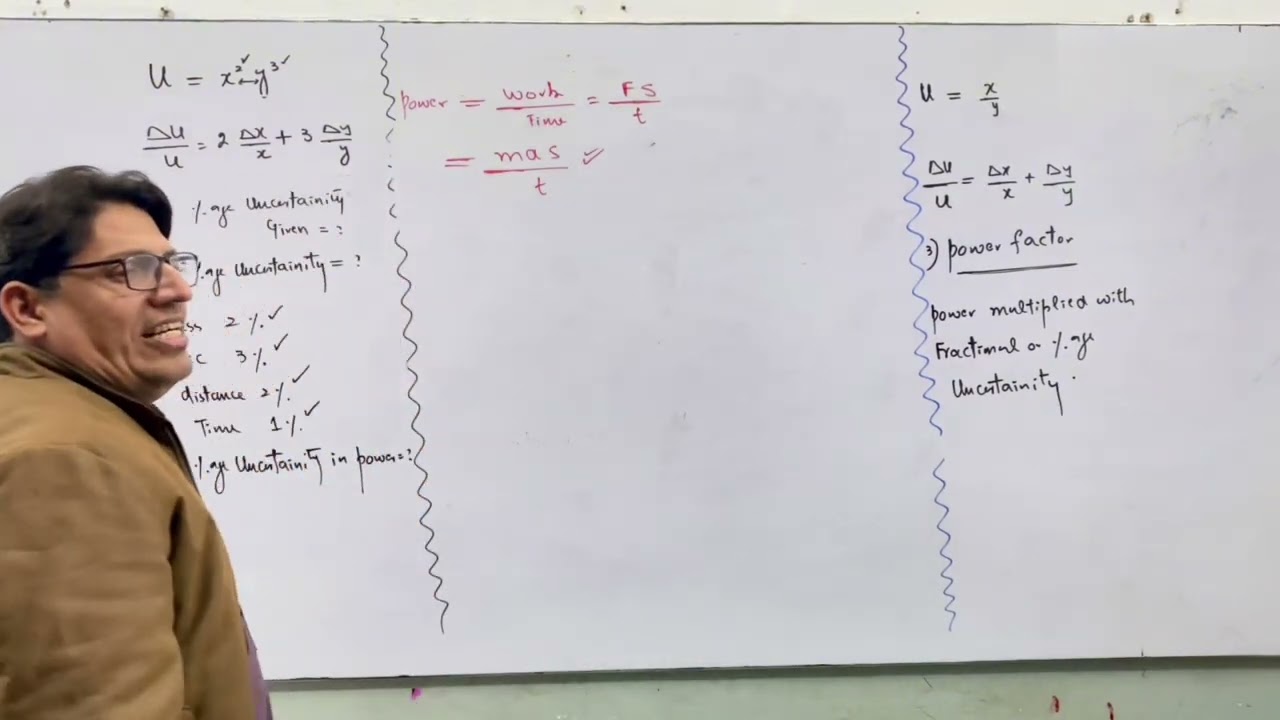 U = x²✓ ↔ y³✓
ΔU/U = 2 Δx/x + 3 Δy/y
%age Uncertainity
Given = ?
%age Uncertainity = ?
ss 2%✓
c 3%✓
distance 2%✓
Time 1%✓
%age Uncertainity in power=?
power = Work/Time = FS/t
= mas/t ✓
U = x/y
ΔU/U = Δx/x + Δy/y
3) power factor
power multiplied with
Fractional or %age
Uncertainity.